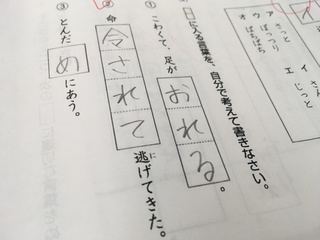 ア　さっと
イ　さ
ウ　ぽっつり
エ　じっと
オ　ぱちぱち
□に入る言葉を、自分で考えて書きなさい。
① こわくて、足がおれる。
② 命令されて逃げてきた。
③ とんだめにあう。